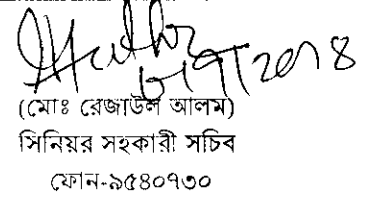 (মোঃ রেজাউল আলম)
সিনিয়র সহকারী সচিব
ফোন-৯৫৪০৭৩০